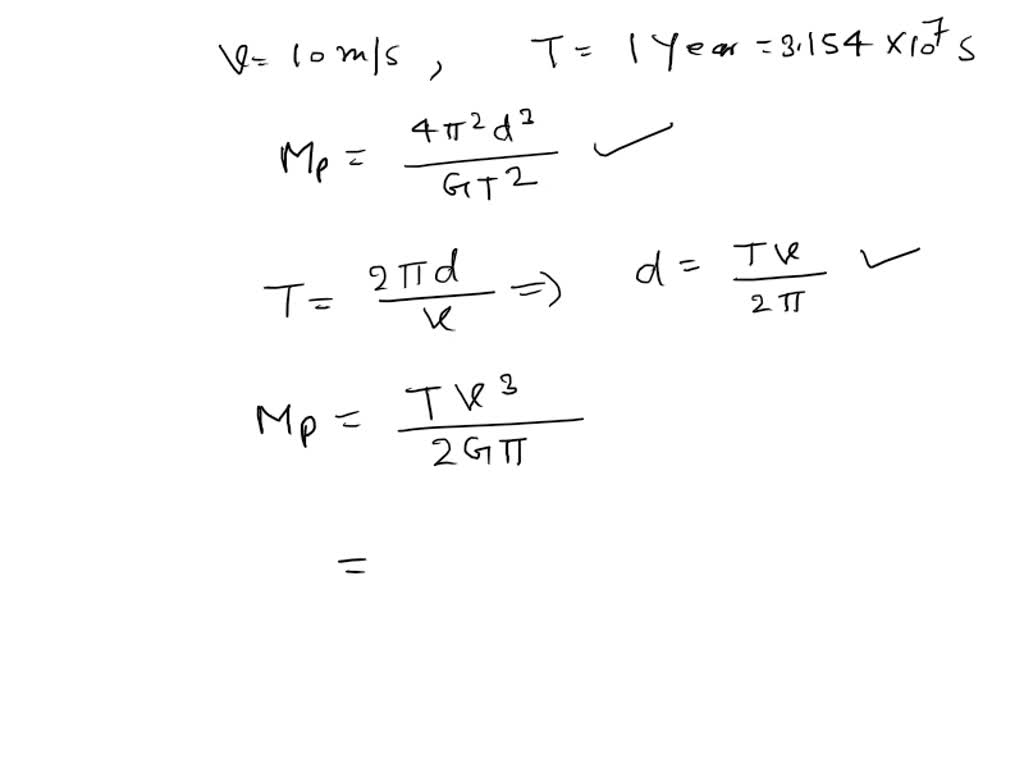 v = 10 m/s , T = 1 Year = 3.154 × 10⁷ s
Mp = 4π²d³ / GT² ✓
T = 2πd / v ⇒ d = Tv / 2π ✓
Mp = Tv³ / 2Gπ
=